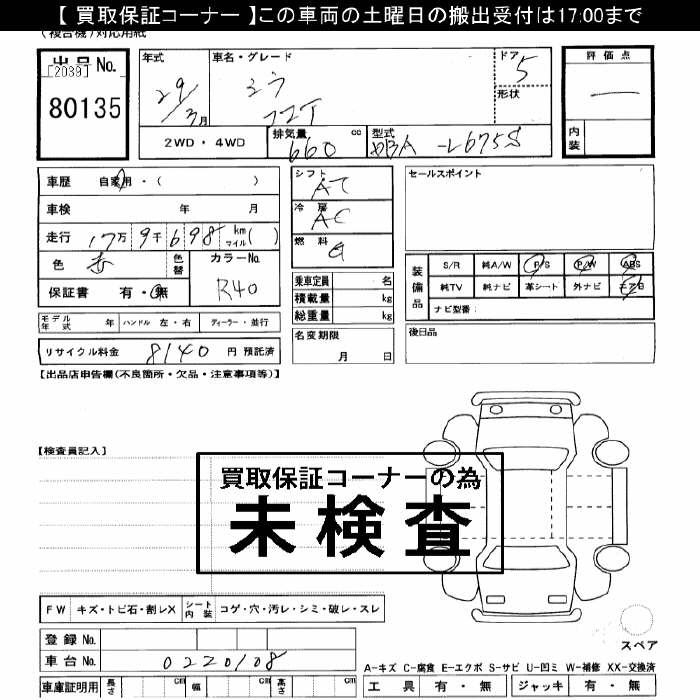 【 買取保証コーナー 】この車両の土曜日の搬出受付は17:00まで
(複合機)対応用紙
出品No.
[2039]
80135
年式
29/3月
車名・グレード
ミラ
ココア
ドア
5
形状
評価点
—
内装
2WD・4WD
排気量
660 cc
型式
DBA-L675S
車歴 自家用・( )
車検 年 月
走行 17万9千698 km マイル( )
色 赤
色替
カラーNo.
R40
保証書 有・無
シフト
AT
冷房
AC
燃料
G
乗車定員 名
積載量 kg
総重量 kg
セールスポイント
装備品
S/R 純A/W P/S P/W ABS
純TV 純ナビ 革シート 外ナビ エアB
ナビ型番:
モデル年式 年
ハンドル 左・右
ディーラー・並行
名変期限
月 日
後日品
リサイクル料金 8140 円 預託済
【出品店申告欄(不良箇所・欠品・注意事項等)】
【検査員記入】
買取保証コーナーの為
未検査
FW キズ・トビ石・割レX
シート内装 コゲ・穴・汚レ・シミ・破レ・スレ
登録No.
車台No. 0220108
車庫証明用 長さ cm 幅 cm 高さ cm
スペア
A-キズ C-腐食 E-エクボ S-サビ U-凹ミ W-補修 XX-交換済
工具 有・無 ジャッキ 有・無